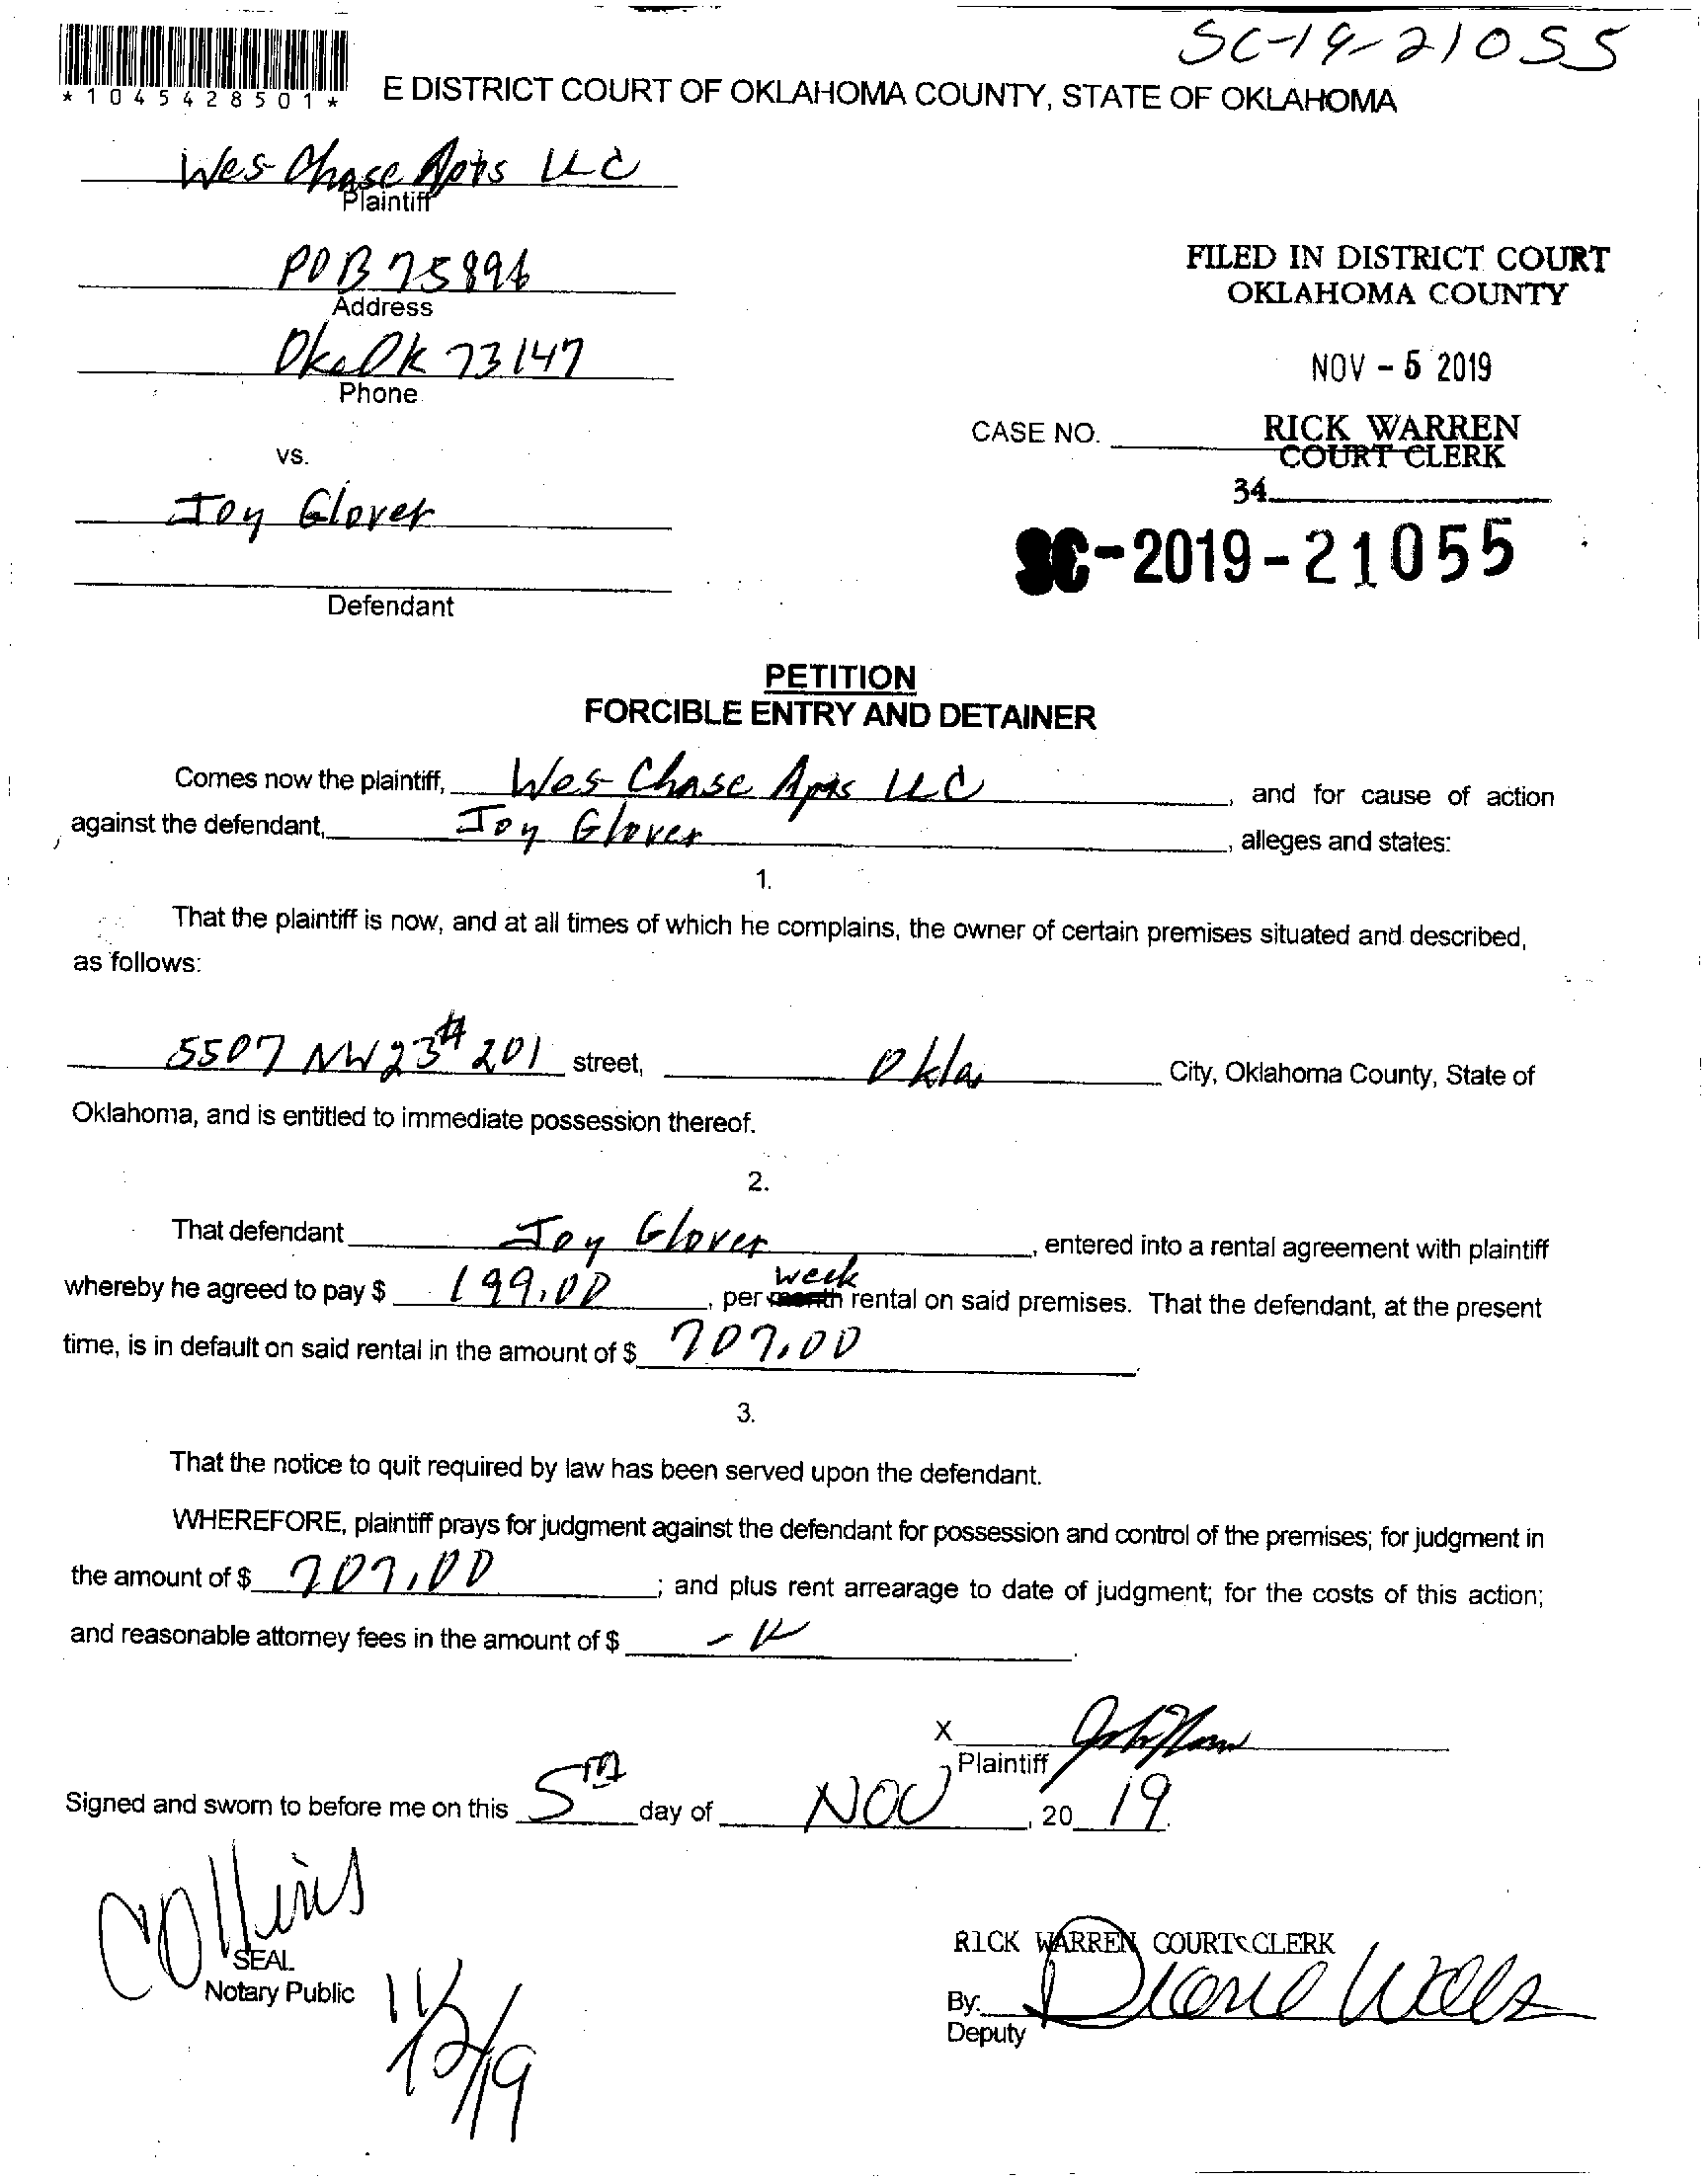 SC-19-21055
*1045428501*
E DISTRICT COURT OF OKLAHOMA COUNTY, STATE OF OKLAHOMA
Wes Chase Apts LLC
Plaintiff
POB 75896
Address
FILED IN DISTRICT COURT
OKLAHOMA COUNTY
Okc Ok 73147
Phone
NOV - 5 2019
CASE NO.
RICK WARREN
COURT CLERK
vs.
34
Joy Glover
SC-2019-21055
Defendant
PETITION
FORCIBLE ENTRY AND DETAINER
Comes now the plaintiff, Wes Chase Apts LLC, and for cause of action
against the defendant, Joy Glover, alleges and states:
1.
That the plaintiff is now, and at all times of which he complains, the owner of certain premises situated and described,
as follows:
5507 NW 23 # 201 street, Okla City, Oklahoma County, State of
Oklahoma, and is entitled to immediate possession thereof.
2.
That defendant Joy Glover, entered into a rental agreement with plaintiff
whereby he agreed to pay $ 199.00, per month week rental on said premises. That the defendant, at the present
time, is in default on said rental in the amount of $ 707.00.
3.
That the notice to quit required by law has been served upon the defendant.
WHEREFORE, plaintiff prays for judgment against the defendant for possession and control of the premises; for judgment in
the amount of $ 707.00; and plus rent arrearage to date of judgment; for the costs of this action;
and reasonable attorney fees in the amount of $
X
Plaintiff
Signed and sworn to before me on this 5TH day of NOV, 20 19.
Collins
SEAL
Notary Public
RICK WARREN COURT CLERK
By:
Deputy